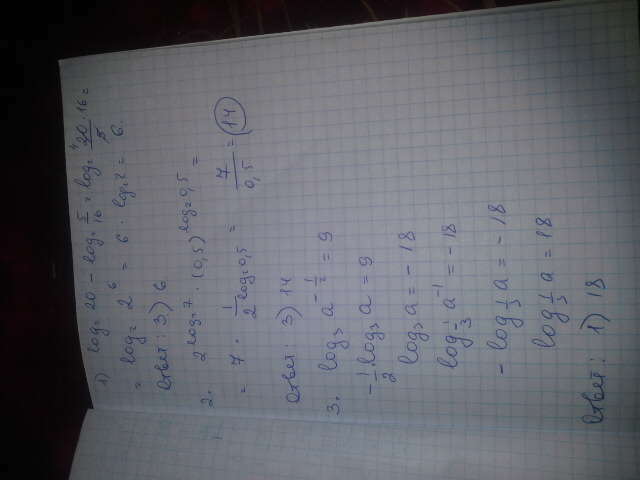 1) log₂ 20 - log₂ 5/16 = log₂ 20·16/5 =
= log₂ 2⁶ = 6 · log₂2 = 6.
Ответ: 3) 6
2. 2^log₂7 · (0,5)^log₂0,5 =
= 7 · 1/2^log₂0,5 = 7/0,5 = 14
Ответ: 3) 14
3. log₃ a^-1/2 = 9
-1/2 · log₃ a = 9
log₃ a = - 18
log 1/3 a⁻¹ = - 18
- log 1/3 a = - 18
log 1/3 a = 18
Ответ: 1) 18